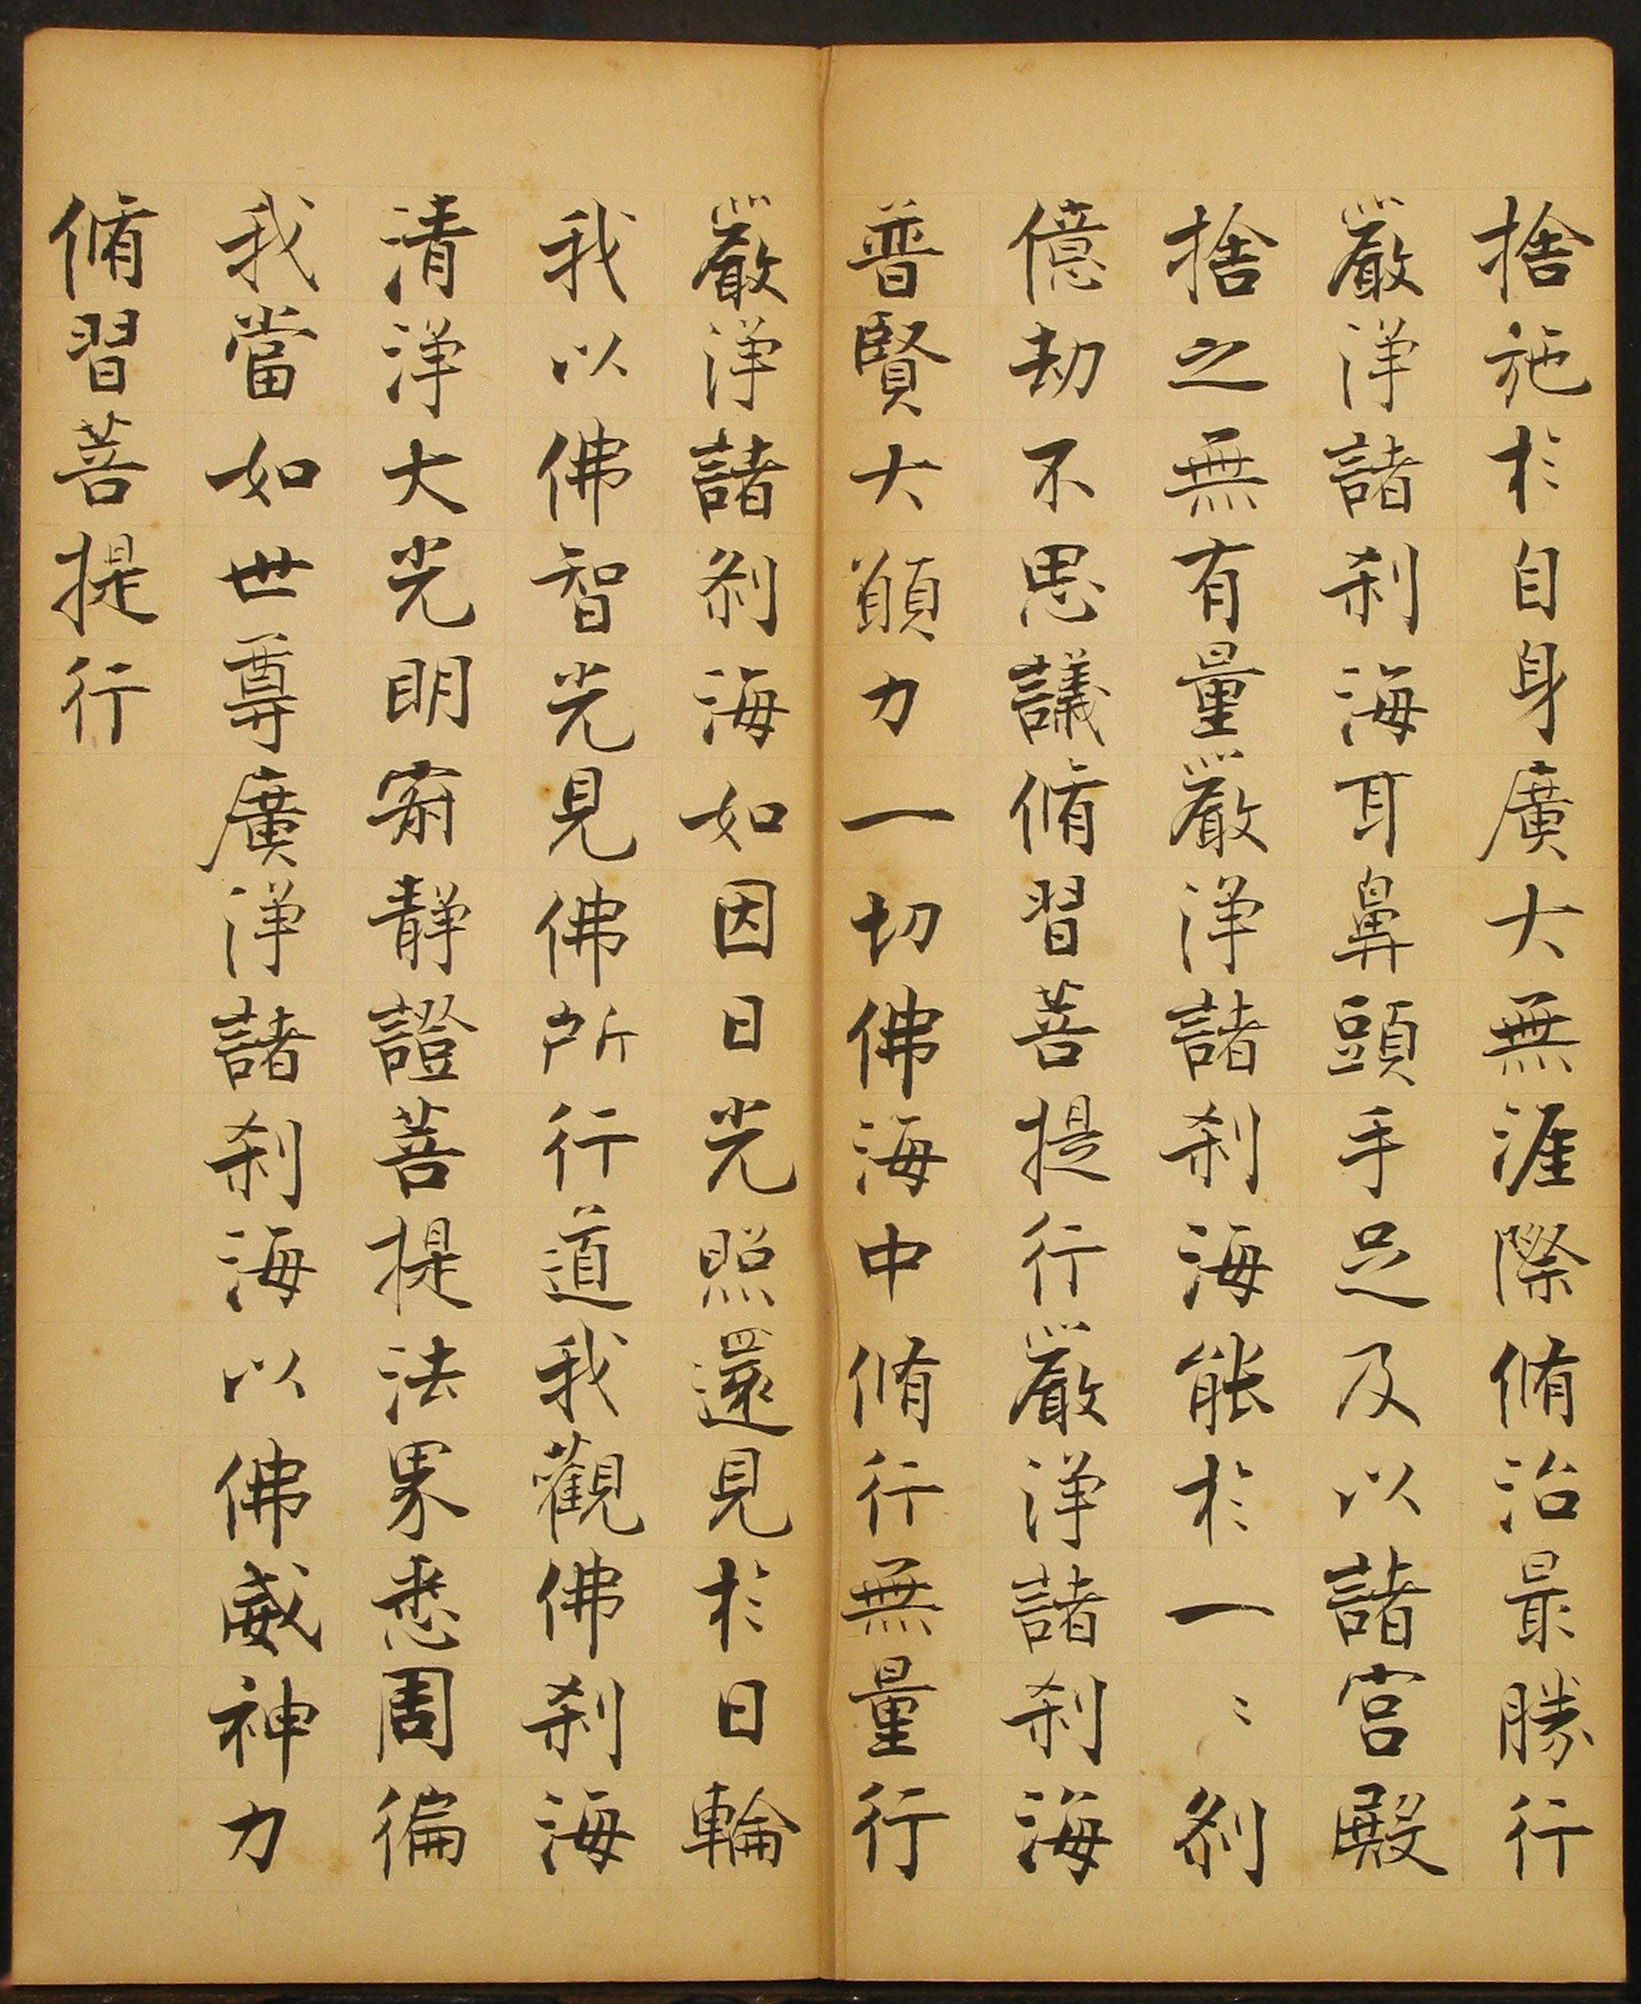 捨施於自身廣大無涯際脩治最勝行
嚴淨諸刹海耳鼻頭手足及以諸宮殿
捨之無有量嚴淨諸刹海能於一〻刹
億劫不思議脩習菩提行嚴淨諸刹海
普賢大願力一切佛海中脩行無量行
嚴淨諸刹海如因日光照還見於日輪
我以佛智光見佛所行道我觀佛刹海
清淨大光明寂靜證菩提法界悉周徧
我當如世尊廣淨諸刹海以佛威神力
脩習菩提行